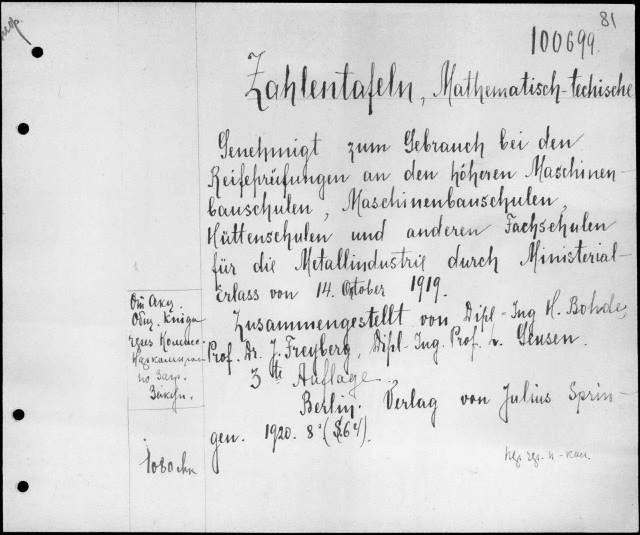 81
100699.
Zahlentafeln, Mathematisch-techische
Genehmigt zum Gebrauch bei den
Reifeprüfungen an den höheren Maschinen-
bauschulen, Maschinenbauschulen,
Hüttenschulen und anderen Fachschulen
für die Metallindustrie durch Ministerial-
Erlass von 14. Oktober 1919.
Zusammengestellt von Dipl-Ing H. Bohde,
Prof. Dr. J. Freyberg, Dipl-Ing. Prof. L. Geusen.
3te Auflage.
Berlin. Verlag von Julius Sprin-
gen. 1920. 8°.
От Акц.
Общ. Книга
чрез Комис.
по Загр.
Закуп.